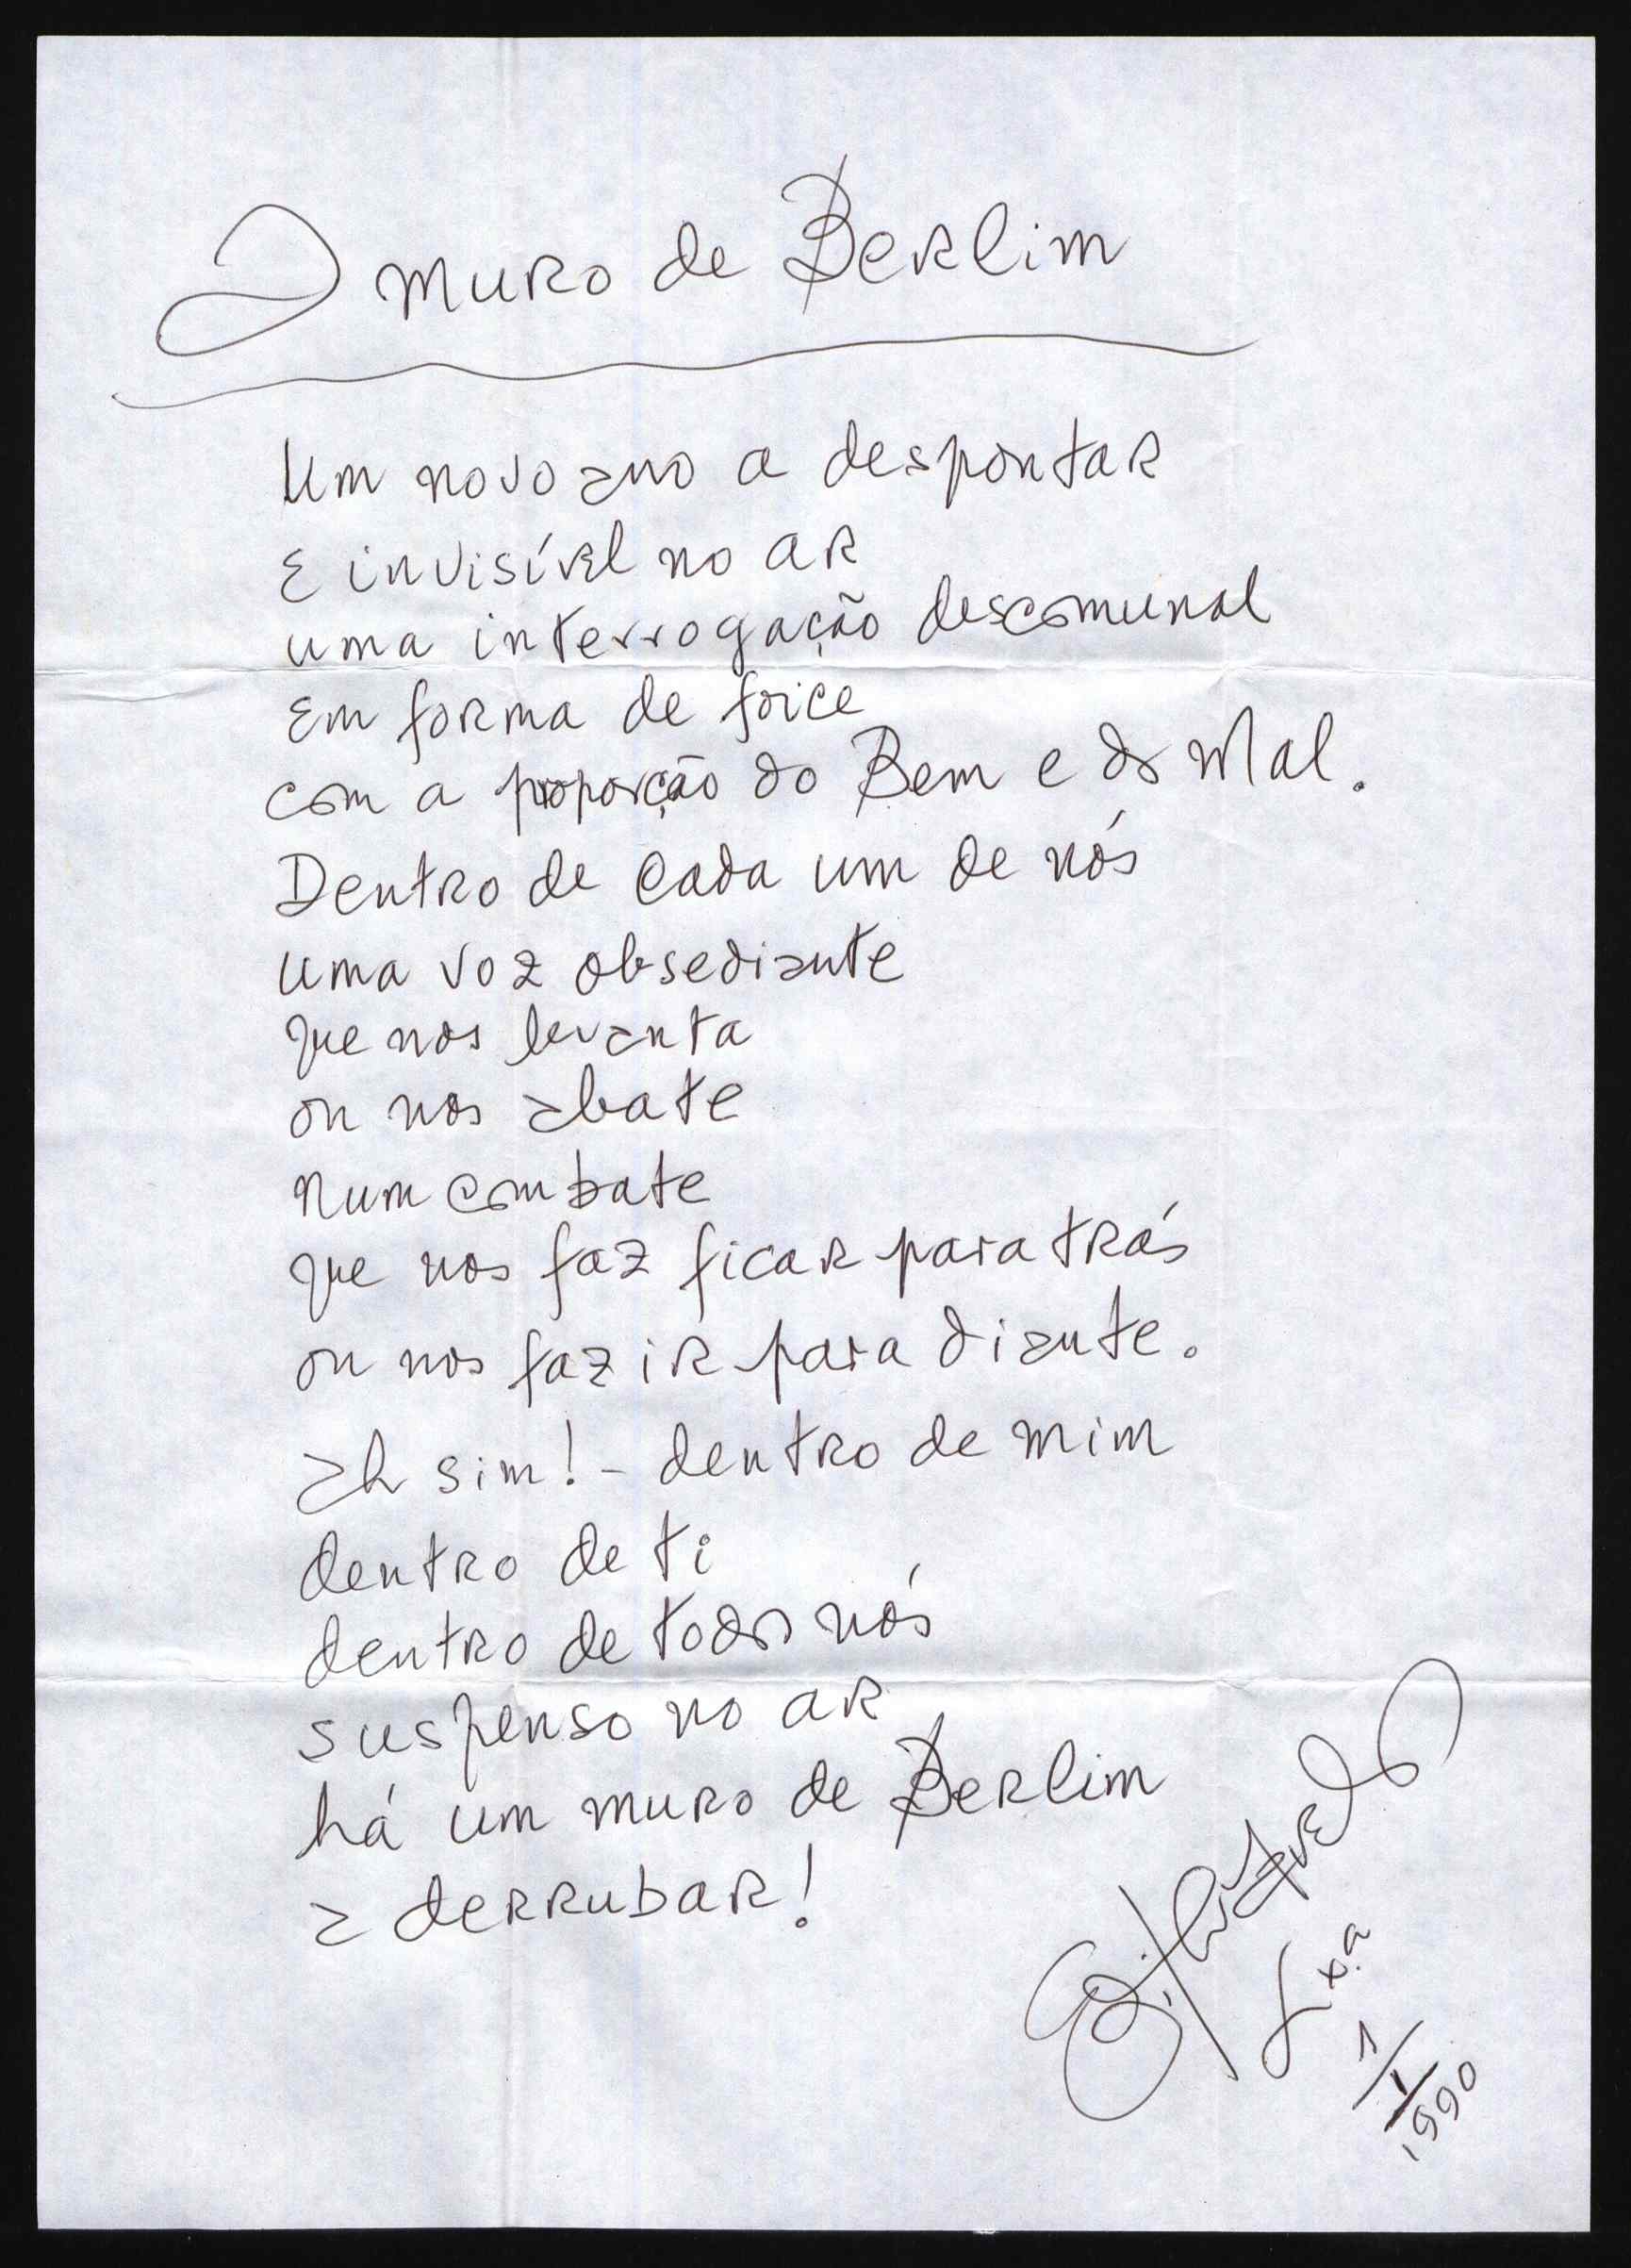 O muro de Berlim
Um novo ano a despontar
e invisível no ar
uma interrogação descomunal
em forma de foice
com a proporção do Bem e do Mal.
Dentro de cada um de nós
uma voz obsediante
que nos levanta
ou nos abate
num combate
que nos faz ficar para trás
ou nos faz ir para diante.
ah sim! - dentro de mim
dentro de ti
dentro de todos nós
suspenso no ar
há um muro de Berlim
a derrubar!
Lx.a
1/1/1990